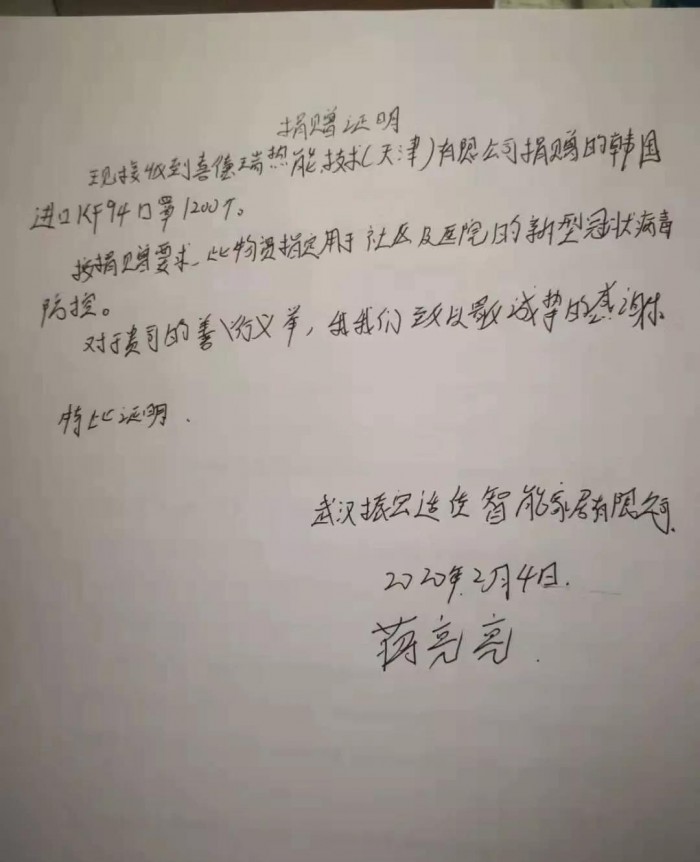 捐赠证明
现接收到喜德瑞热能技术(天津)有限公司捐赠的韩国
进口KF94口罩1200个。
按捐赠要求、此物资指定用于社区及医院的新型冠状病毒
防控。
对于贵司的善行义举，我们致以最诚挚的感谢
特此证明.
武汉振宏连佳智能家居有限公司
2020年2月4日.
蒋亮亮.